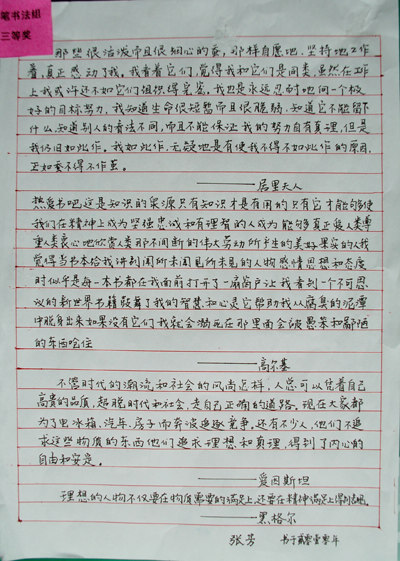 笔书法组
三等奖
那些很活泼而且很细心的蚕，那样自愿地、坚持地工作
着，真正感动了我，我看着它们，觉得我和它们是同类，虽然在工作
上我或许还不如它们组织得呈鉴，我也是永远忍耐地向一个极
好的目标努力，我知道生命很短暂而且很脆弱，知道它不能留下
什么，知道别人的看法不同，而且不能保证我的努力自有真理，但是
我仍旧如此作，我如此作，无疑地是有使我不得不如此作的原因，
正如蚕不得不作茧。
——居里夫人
热爱书吧这是知识的泉源只有知识才是有用的只有它才能够使
我们在精神上成为坚强忠诚和有理智的人成为能够真正爱人类尊
重人类良心地欣赏人类那不间断的伟大劳动所产生的美好果实的人我
觉得当书本给我讲到闻所未闻见所未见的人物感情思想和态度
时似乎是每一本书都在我面前打开了一扇窗户让我看到一个不可思
议的新世界书籍鼓舞了我的智慧和心灵它帮助我从腐臭的泥潭
中脱身出来如果没有它们我就会溺死在那里面会被愚笨和鄙陋
的东西呛住
——高尔基
不管时代的潮流和社会的风尚怎样，人总可以凭着自己
高贵的品质，超脱时代和社会，走自己正确的道路。现在大家都
为了电冰箱、汽车、房子而奔波追逐竞争，还有不少人，他们不追
求这些物质的东西他们追求理想和真理，得到了内心的
自由和安宁。
——爱因斯坦
理想的人物不仅要在物质需要的满足上，还要在精神满足上得到表现。
——黑格尔
张芳 书于贰零壹零年